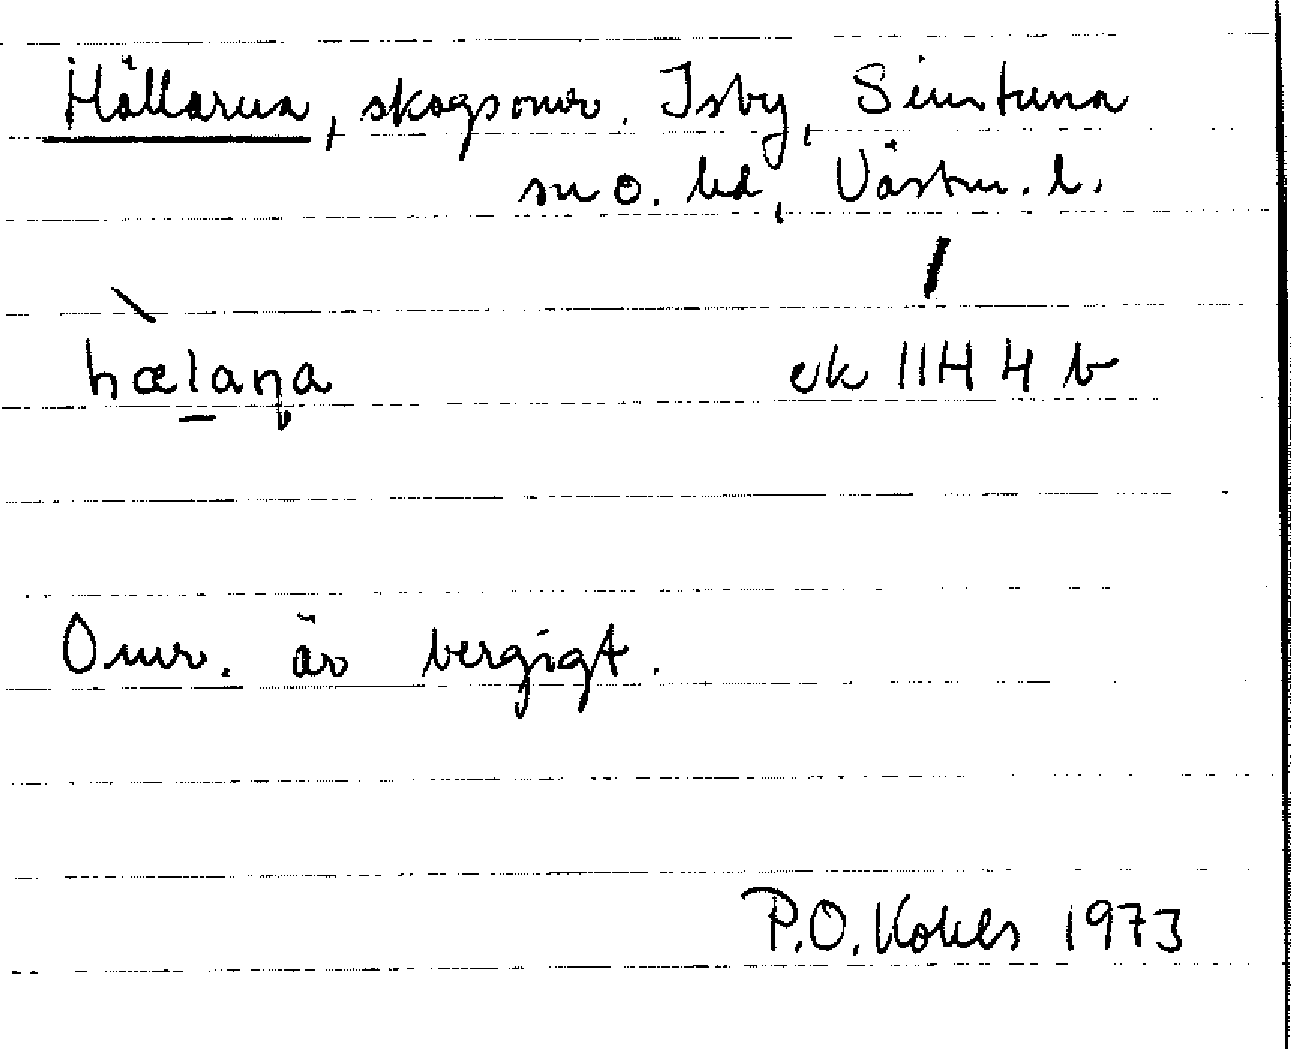 Hällarna, skogsomr. Isby, Simtuna
sn o. hd, Västm. l.
hælaṇa
ek 11H 4 b
Omr. är bergigt.
P.O. 1973